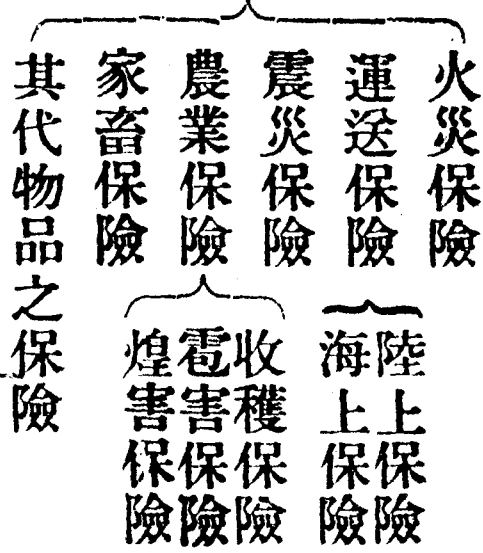 火災保險
運送保險
陸上保險
海上保險
震災保險
農業保險
收穫保險
雹害保險
煌害保險
家畜保險
其代物品之保險